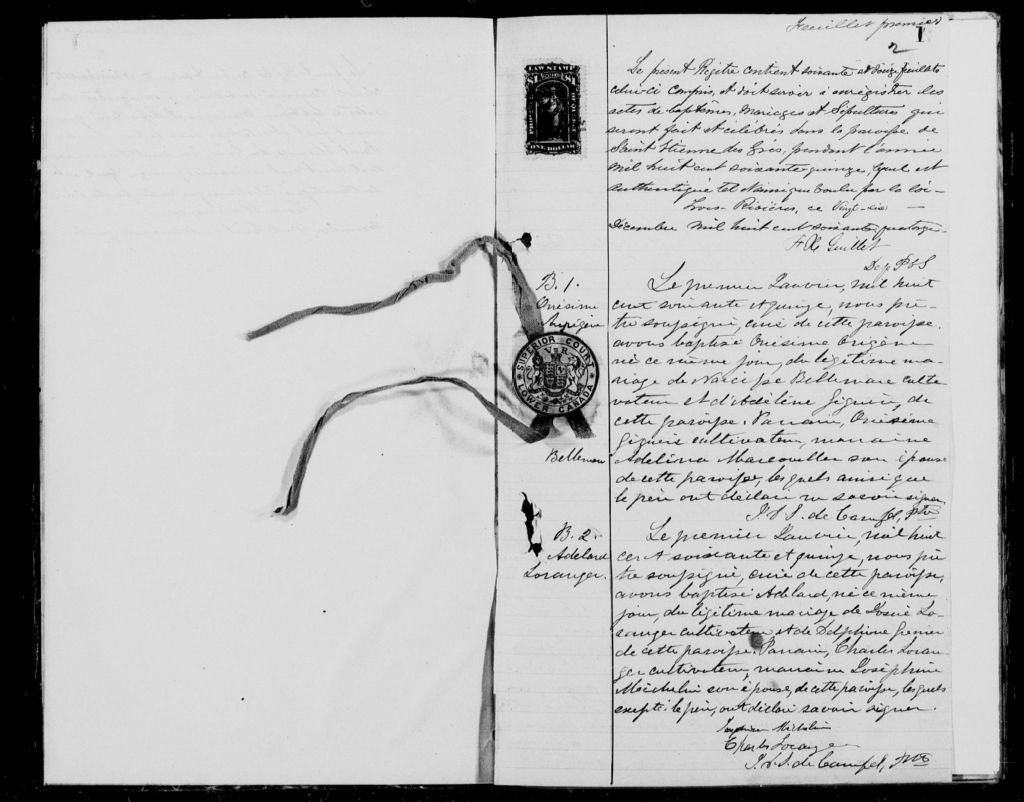 Feuillet premier
1
2
LAW STAMP
$1 $1
ONE DOLLAR
Le présent Régistre contient soixante et douze feuillets
celui ci compris, et doit servir à enrégistrer les
actes de baptêmes, Mariages et Sépultures qui
seront fait et célébrés dans la paroisse de
Saint Etienne des Grès, pendant l'année
mil huit cent soixante quinze, lequel est
authentiqué tel voulu par la loi -
Trois-Rivières, ce Vingt-six -
Décembre mil huit cent soixante quatorze -
F X Guillet
Dep P & S
B. 1.
Onésime
Origène
Bellemare
SUPERIOR COURT
V R
LOWER CANADA
Le premier Janvier, mil huit
cent soixante et quinze, nous prê-
tre soussigné, curé de cette paroisse,
avons baptisé Onésime Origène
né ce même jour, du légitime ma-
riage de Narcisse Bellemare culti-
vateur et d'Adéline Giguère, de
cette paroisse. Parrain, Onésime
Giguère cultivateur, marraine
Adelina Marcouiller son épouse
de cette paroisse, lesquels ainsi que
le père ont déclaré ne savoir signer.
Ptre
B. 2.
Adelard
Loranger.
Le premier Janvier, mil huit
cent soixante et quinze, nous prê-
tre soussigné, curé de cette paroisse,
avons baptisé Adelard, né ce même
jour, du légitime mariage de Josué Lo-
ranger cultivateur et de Delphine Grenier
de cette paroisse. Parrain, Charles Loran-
ger cultivateur, marraine Joséphine
Michelin son épouse, de cette paroisse, lesquels
excepté le père, ont déclaré savoir signer.
Michelin
Charles Loranger
Ptre